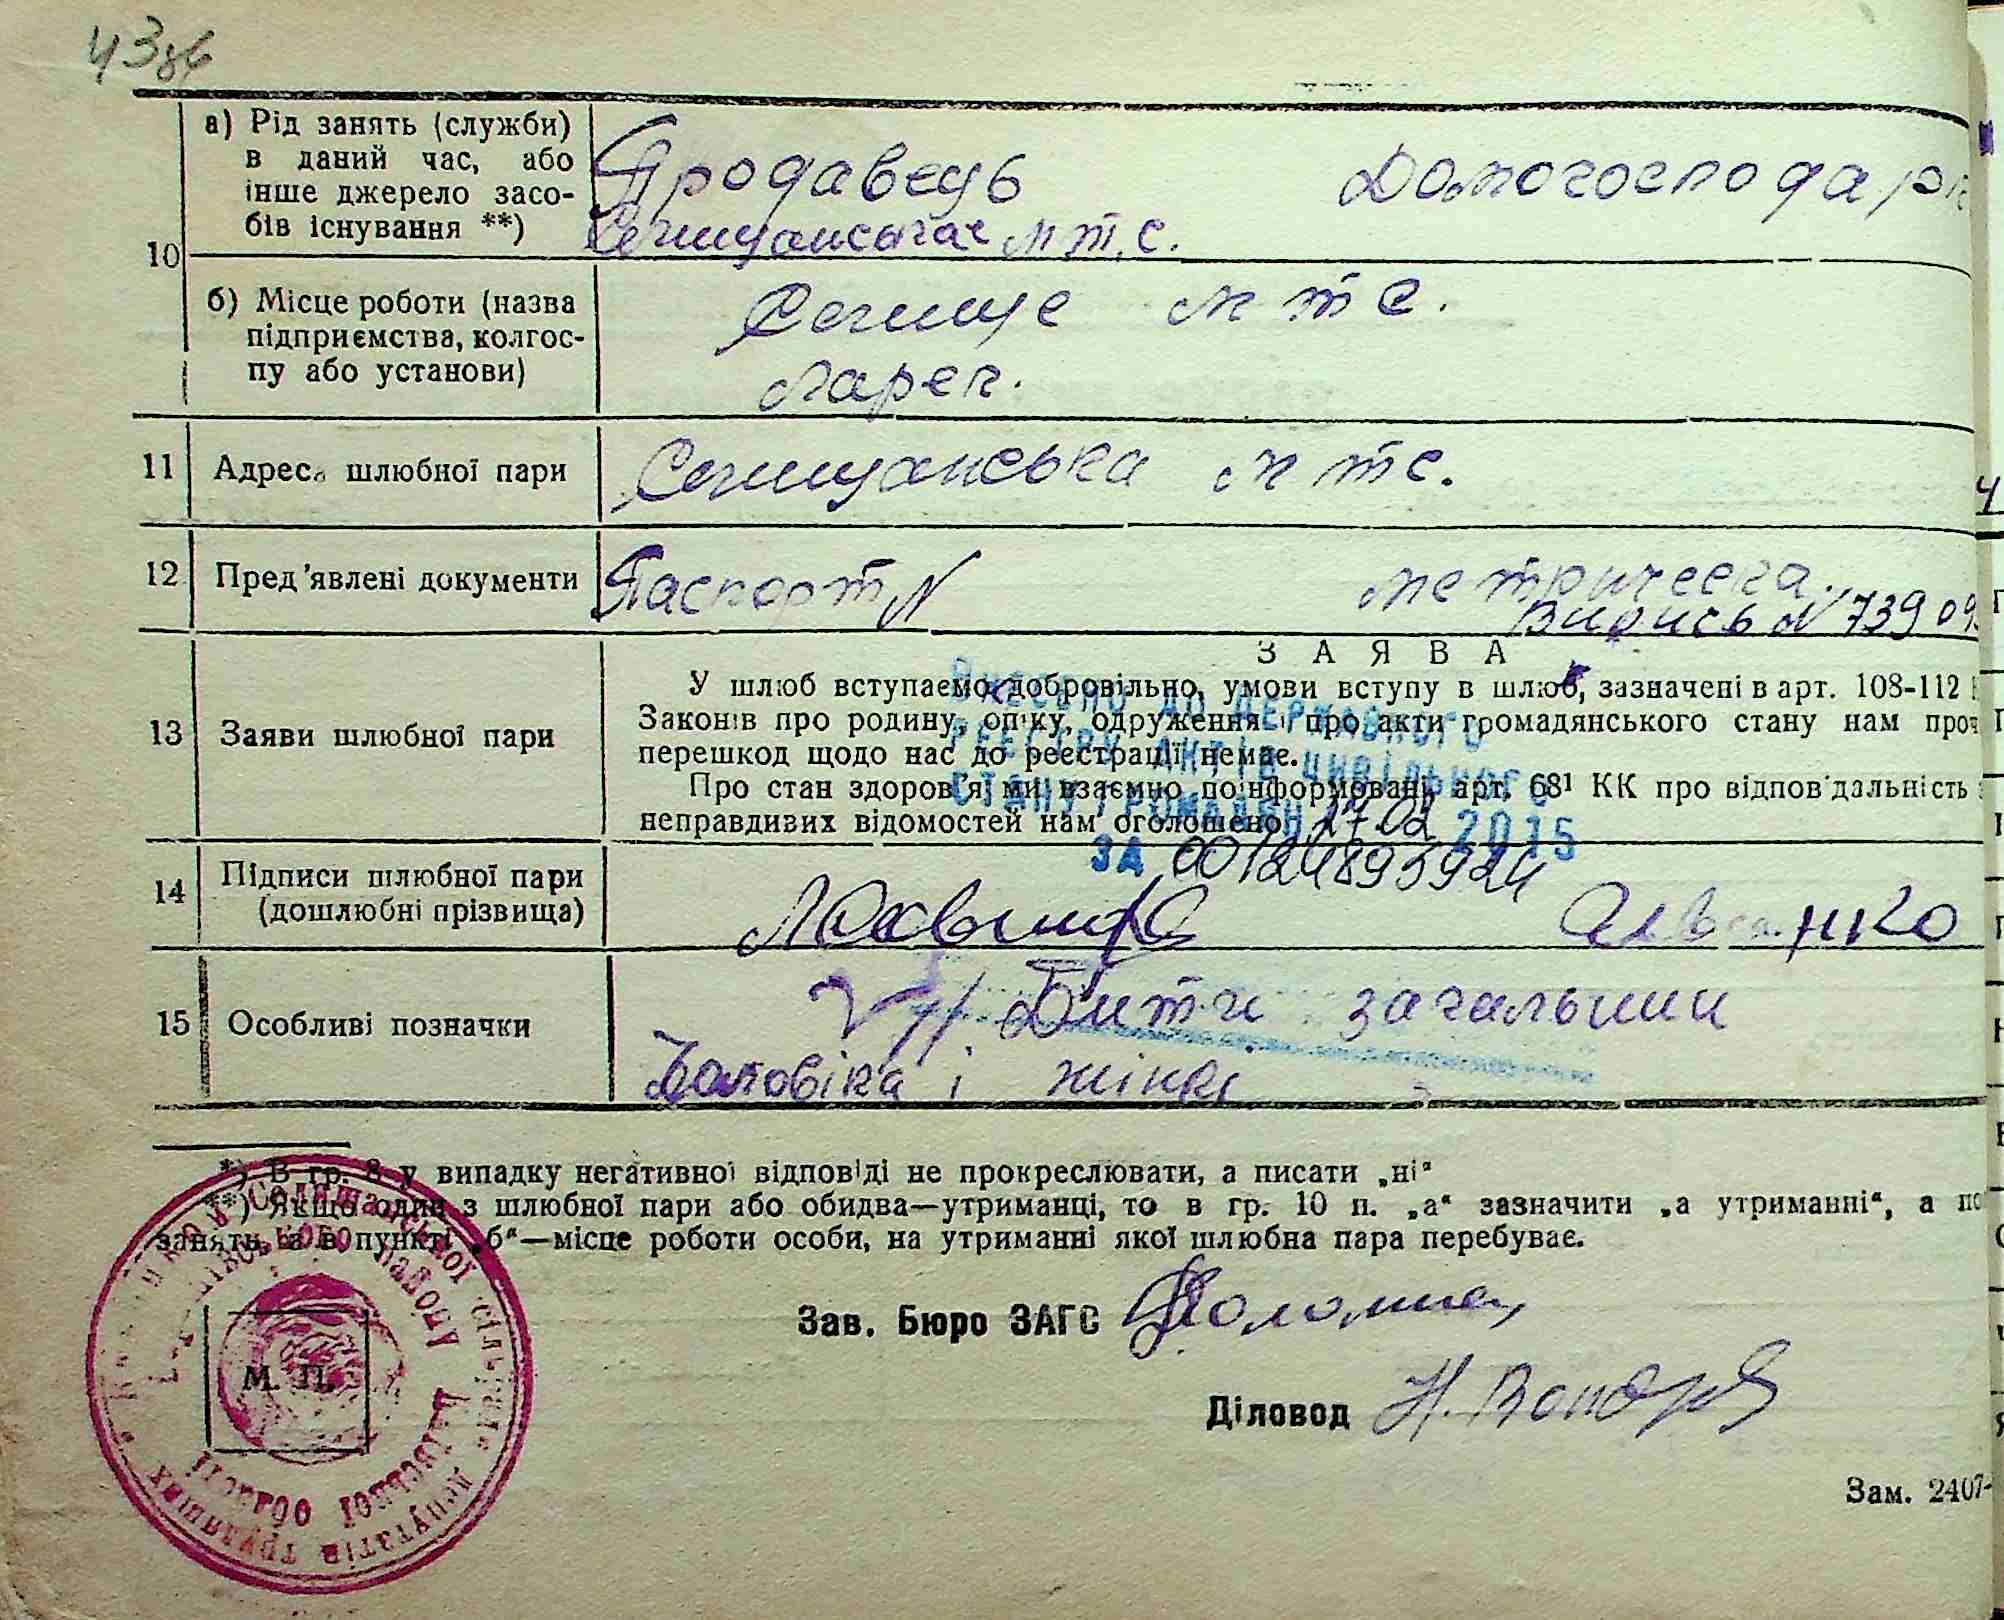 а) Рід занять (служби)
в даний час, або
інше джерело засо-
бів існування **)
Продавець
Домогосподар
м т. с.
10
б) Місце роботи (назва
підприємства, колгос-
пу або установи)
Селище м т с.
Ларек.
11 Адреса шлюбної пари
Селищанська м т с.
12 Пред'явлені документи
Паспорт N
метрическа
Випись N 739 09
13 Заяви шлюбної пари
ЗАЯВА
У шлюб вступаємо добровільно, умови вступу в шлюб, зазначені в арт. 108-112
Законів про родину, опіку, одруження і про акти громадянського стану нам проч
перешкод щодо нас до реєстрації немає.
Про стан здоров'я ми взаємно поінформовані, арт. 68¹ КК про відповідальність з
неправдивих відомостей нам оголошено
Внесено до Державного
реєстру актів цивільного
стану громадян
27.02 2015
ЗА 00124895924
14 Підписи шлюбної пари
(дошлюбні прізвища)
15 Особливі позначки
Діти загальнии
Чоловіка і жінки
*) В гр. 8 у випадку негативної відповіді не прокреслювати, а писати „ні"
**) Якщо один з шлюбної пари або обидва—утриманці, то в гр. 10 п. „а" зазначити „а утриманні", а по
занять, а в пункті „б"—місце роботи особи, на утриманні якої шлюбна пара перебуває.
Зав. Бюро ЗАГС
М. П.
Діловод
Зам. 2407-
Селищанської сільської
депутатів трудящих
району
області